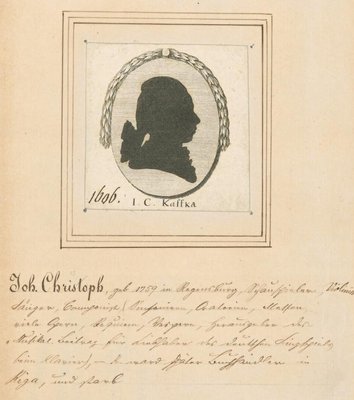 1606.
I. C. Kaffka
Joh. Christoph, geb. 1759 in Regensburg, Schauspieler, Violinist
Sänger, Componist (Sinfonieen, Oratorien, Messen,
viele Opern, Requiem, Vespern, Herausgeber des
Musikal. Beitrag für Liebhaber des deutschen Singspiels
beim Klavier), – K. ward später Buchhändler in
Riga, und starb